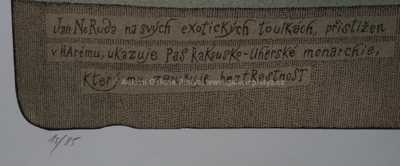 Jan NeRuda na svých exotických toulkách, přistižen
v HARému, ukazuje Pas Rakousko-Uherské monarchie,
který mu zaručuje beztRestnosT
15/85